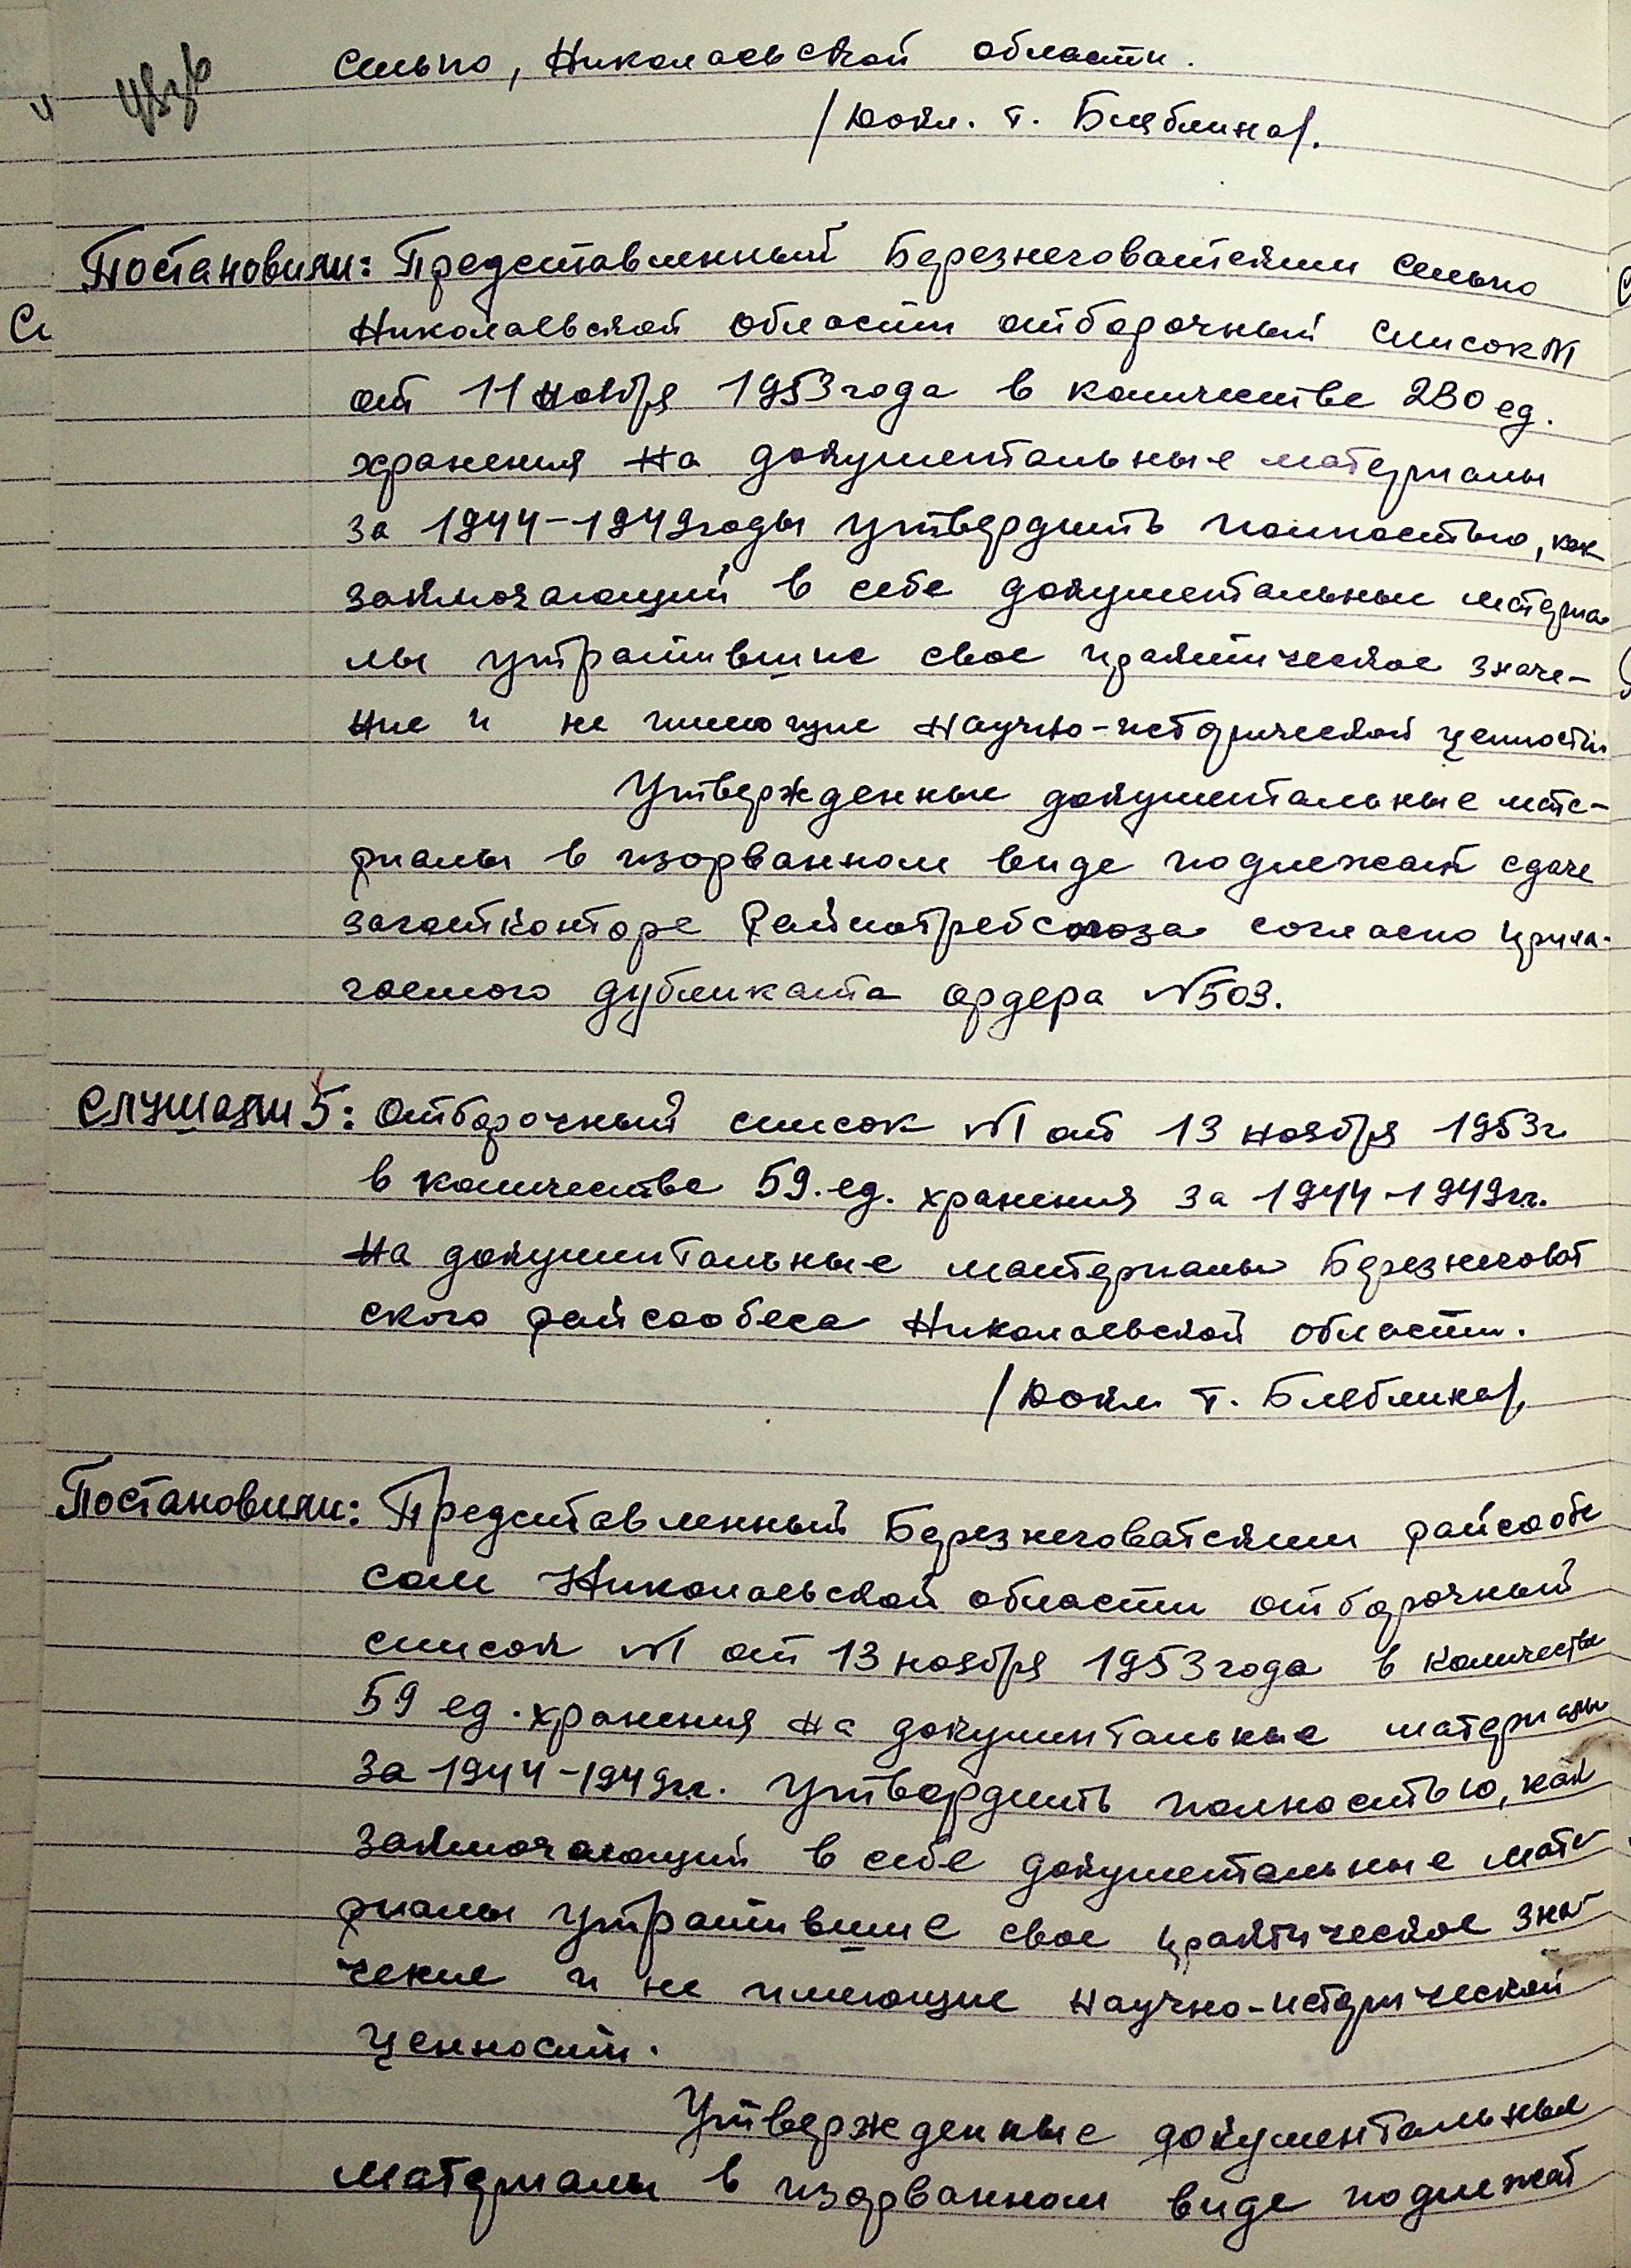 сельпо, Николаевской области.
/Докл. т. Бляблина/.
Постановили: Представленный Березнеговатским сельпо
Николаевской области отборочный список №1
от 11 ноября 1953 года в количестве 280 ед.
хранения на документальные материалы
за 1944-1949 годы утвердить полностью, как
заключающий в себе документальные материа-
лы утратившие свое практическое значе-
ние и не имеющие научно-исторической ценности
Утвержденные документальные мате-
риалы в изорванном виде подлежат сдаче
заготконторе Райпотребсоюза согласно прила-
гаемого дубликата ордера №503.
Слушали 5: Отборочный список №1 от 13 ноября 1953 г.
в количестве 59. ед. хранения за 1944-1949 г.г.
на документальные материалы Березнеговат
ского райсобеса Николаевской области.
/Докл т. Бляблина/.
Постановили: Представленный Березнеговатским райсобе
сом Николаевской области отборочный
список №1 от 13 ноября 1953 года в количестве
59 ед. хранения на документальные материалы
за 1944-1949 г.г. утвердить полностью, как
заключающий в себе документальные мате-
риалы утратившие свое практическое зна-
чение и не имеющие научно-исторической
ценности.
Утвержденные документальные
материалы в изорванном виде подлежат